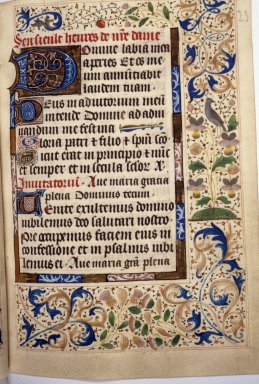 Sensieult heures de nr̃e dame
Domine labia mea
aperies Et os me
um annūtiabit
laudem tuam.
Deus in adiutorium meū
intende Domine ad adiu
uandum me festina
Gloria patri et filio et spūi sc̄o
sicut erat in principio et nūc
et semper et in secula sclor̃
Inuitatoriū. Aue maria gratia
plena Dominus tecum.
Venite exultemus domino
iubilemus deo salutari nostro
Pre occupemus faciem eius in
confessione et in psalmis iubi
lemus ei. Aue maria grā plena
23